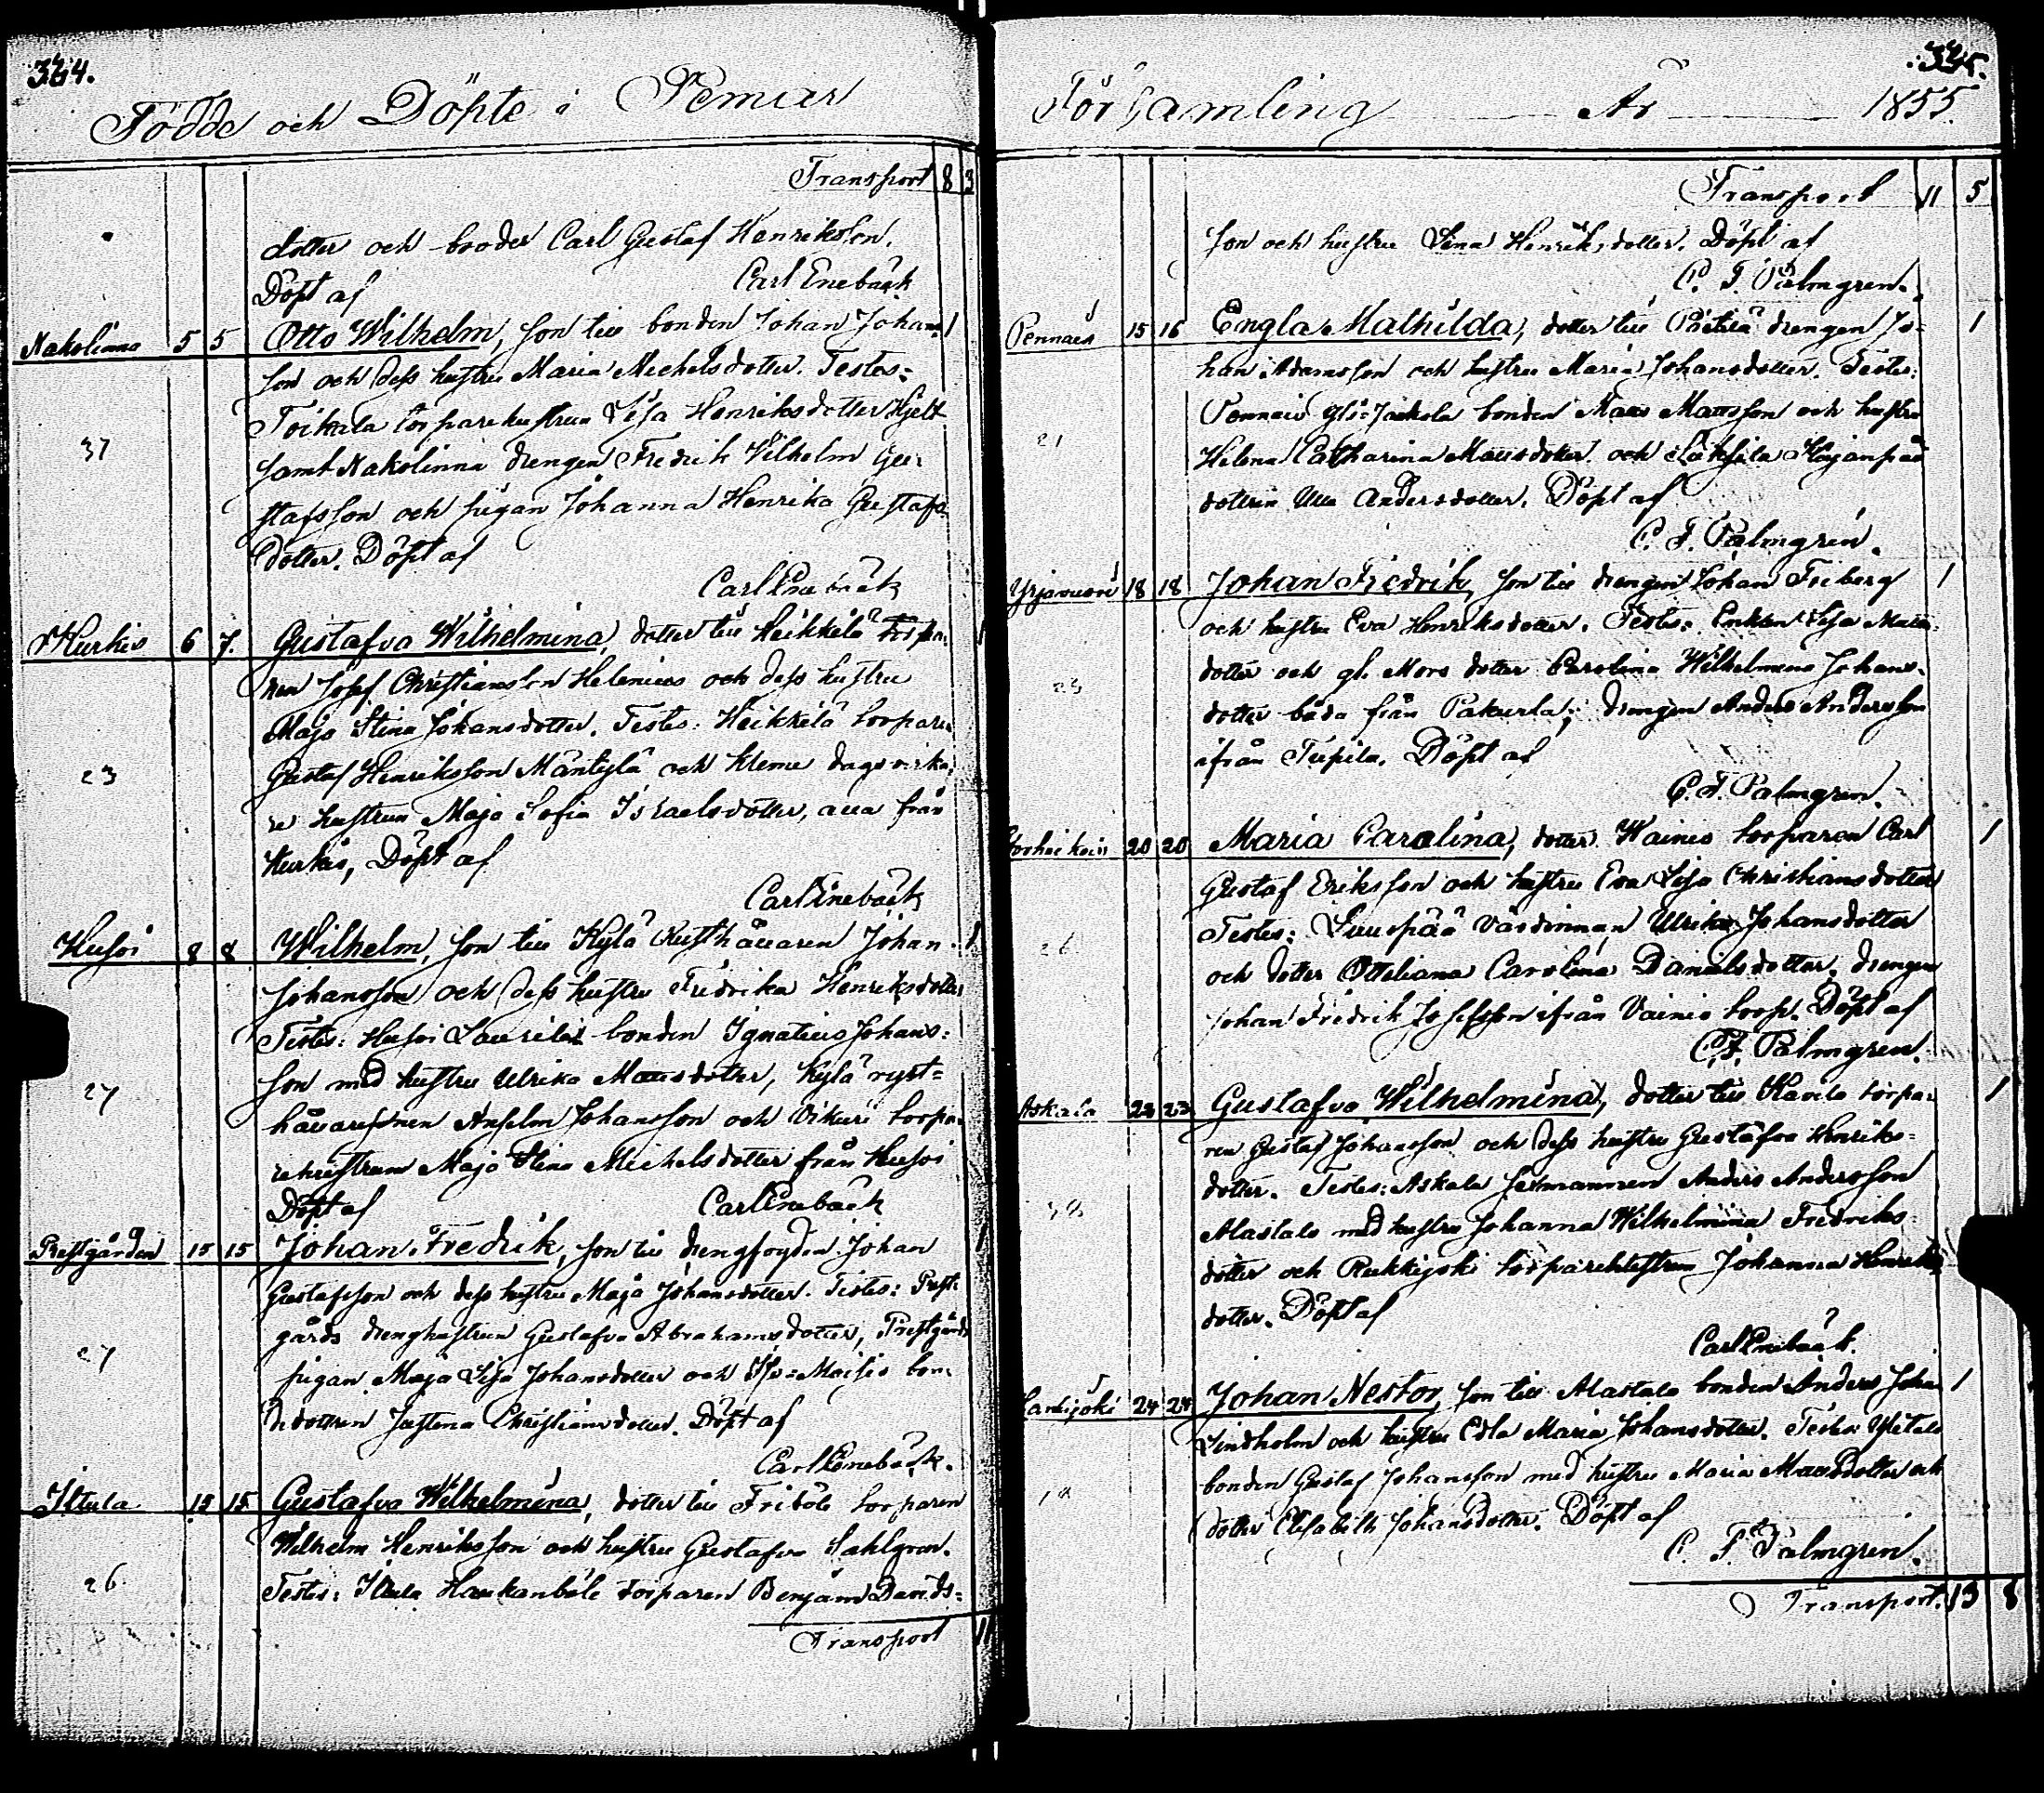 364.
Födde och Döpte i Pemar
Transport 8 3
dotter och broder Carl Gustaf Henriksson.
Döpt af Carl Enebäck
Nakolinna 5 5 Otto Wilhelm, son till bonden Johan Johans- 1
son och dess hustru Maria Michelsdotter. Testes:
Toikala torparehustrun Lisa Henriksdotter Hjelt
37
samt Nakolinna drengen Fredrik Wilhelm Gu-
stafsson och pigan Johanna Henrika Gustafs-
dotter. Döpt af
Carl Enebäck
Kurkis 6 7. Gustafva Wilhelmina, dotter till Heikkilä torpa- 1
ren Josef Christiansson Helenius och dess hustru
Maja Stina Johansdotter. Testes: Heikkilä torparen
23
Gustaf Henriksson Mäntylä och Kleme dagsverka-
re hustrun Maja Sofia Israelsdotter, alla från
Kurkis, Döpt af
Carl Enebäck
Husoi 8 8 Wilhelm, son till Kylä Rusthållaren Johan 1
Johansson och dess hustru Fredrika Henriksdotter
Testes: Husoi Laurila bonden Ignatius Johans-
son med hustru Ulrika Mattsdotter, Kylä ryst-
27
hållaresonen Anselm Johansson och torpa-
rehustrun Maja Stina Michelsdotter från Husoi
Döpt af Carl Enebäck
Prestgården 15 15 Johan Fredrik, son till drengfogden Johan 1
Gustafsson och dess hustru Maja Johansdotter. Testes: Prest-
gårds drenghustrun Gustafva Abrahamsdotter, Prestgårds
27
pigan Maja Lisa Johansdotter och bon-
dedottren Justina Christiansdotter. Döpt af
Carl Enebäck.
Iltula 15 15 Gustafva Wilhelmina, dotter till Friböle torparen
Wilhelm Henriksson och hustru Gustafva Sahlgren.
26
Testes: Iltula Haukanböle torparen Benjam Davids-
Transport 11

325.
Församling År 1855.
Transport 11 5
son och hustru Lena Henriksdotter. Döpt af
C. F. Palmgren.
Pennais 15 16 Engla Mathilda, dotter till Pättilä drengen Jo- 1
han Adamsson och hustru Maria Johansdotter. Testes:
Pennais Yli-Jaakola bonden Matts Mattsson och hustru
21
Helena Catharina Mattsdotter och
dottren Ulla Andersdotter. Döpt af
C. F. Palmgren.
Yrjänvuori 18 18 Johan Fredrik, son till drengen Johan Friberg 1
och hustru Eva Henriksdotter. Testes: Enkan Lisa Matts-
dotter och gl. Mors dotter Carolina Wilhelmina Johans-
23
dotter båda från Pakurla; drengen Anders Andersson
ifrån Tupila. Döpt af
C. F. Palmgren.
20 20 Maria Carolina, dotter Wainio torparen Carl 1
Gustaf Eriksson och hustru Eva Lisa Christiansdotter
Testes: Suuspää värdinnan Ulrika Johansdotter
26
och dotter Otteliana Carolina Danielsdotter, drengen
Johan Fredrik Josefsson ifrån Vainio torp. Döpt af
C. F. Palmgren.
Askala 23 23 Gustafva Wilhelmina, dotter till torpa- 1
ren Gustaf Johansson och dess hustru Gustafva Henriks-
dotter. Testes: Askala sexmannen Anders Andersson
Alastalo med hustru Johanna Wilhelmina Fredriks-
dotter och Rukkijoki torparehustrun Johanna Henriks-
dotter. Döpt af
Carl Enebäck.
24 24 Johan Nestor, son till Alastalo bonden Anders Johan 1
Lindholm och hustru Edla Maria Johansdotter. Testes: Ylitalo
bonden Gustaf Johansson med hustru Maria Mattsdotter och
dotter Elisabeth Johansdotter. Döpt af
C. F. Palmgren.
Transport. 13 8